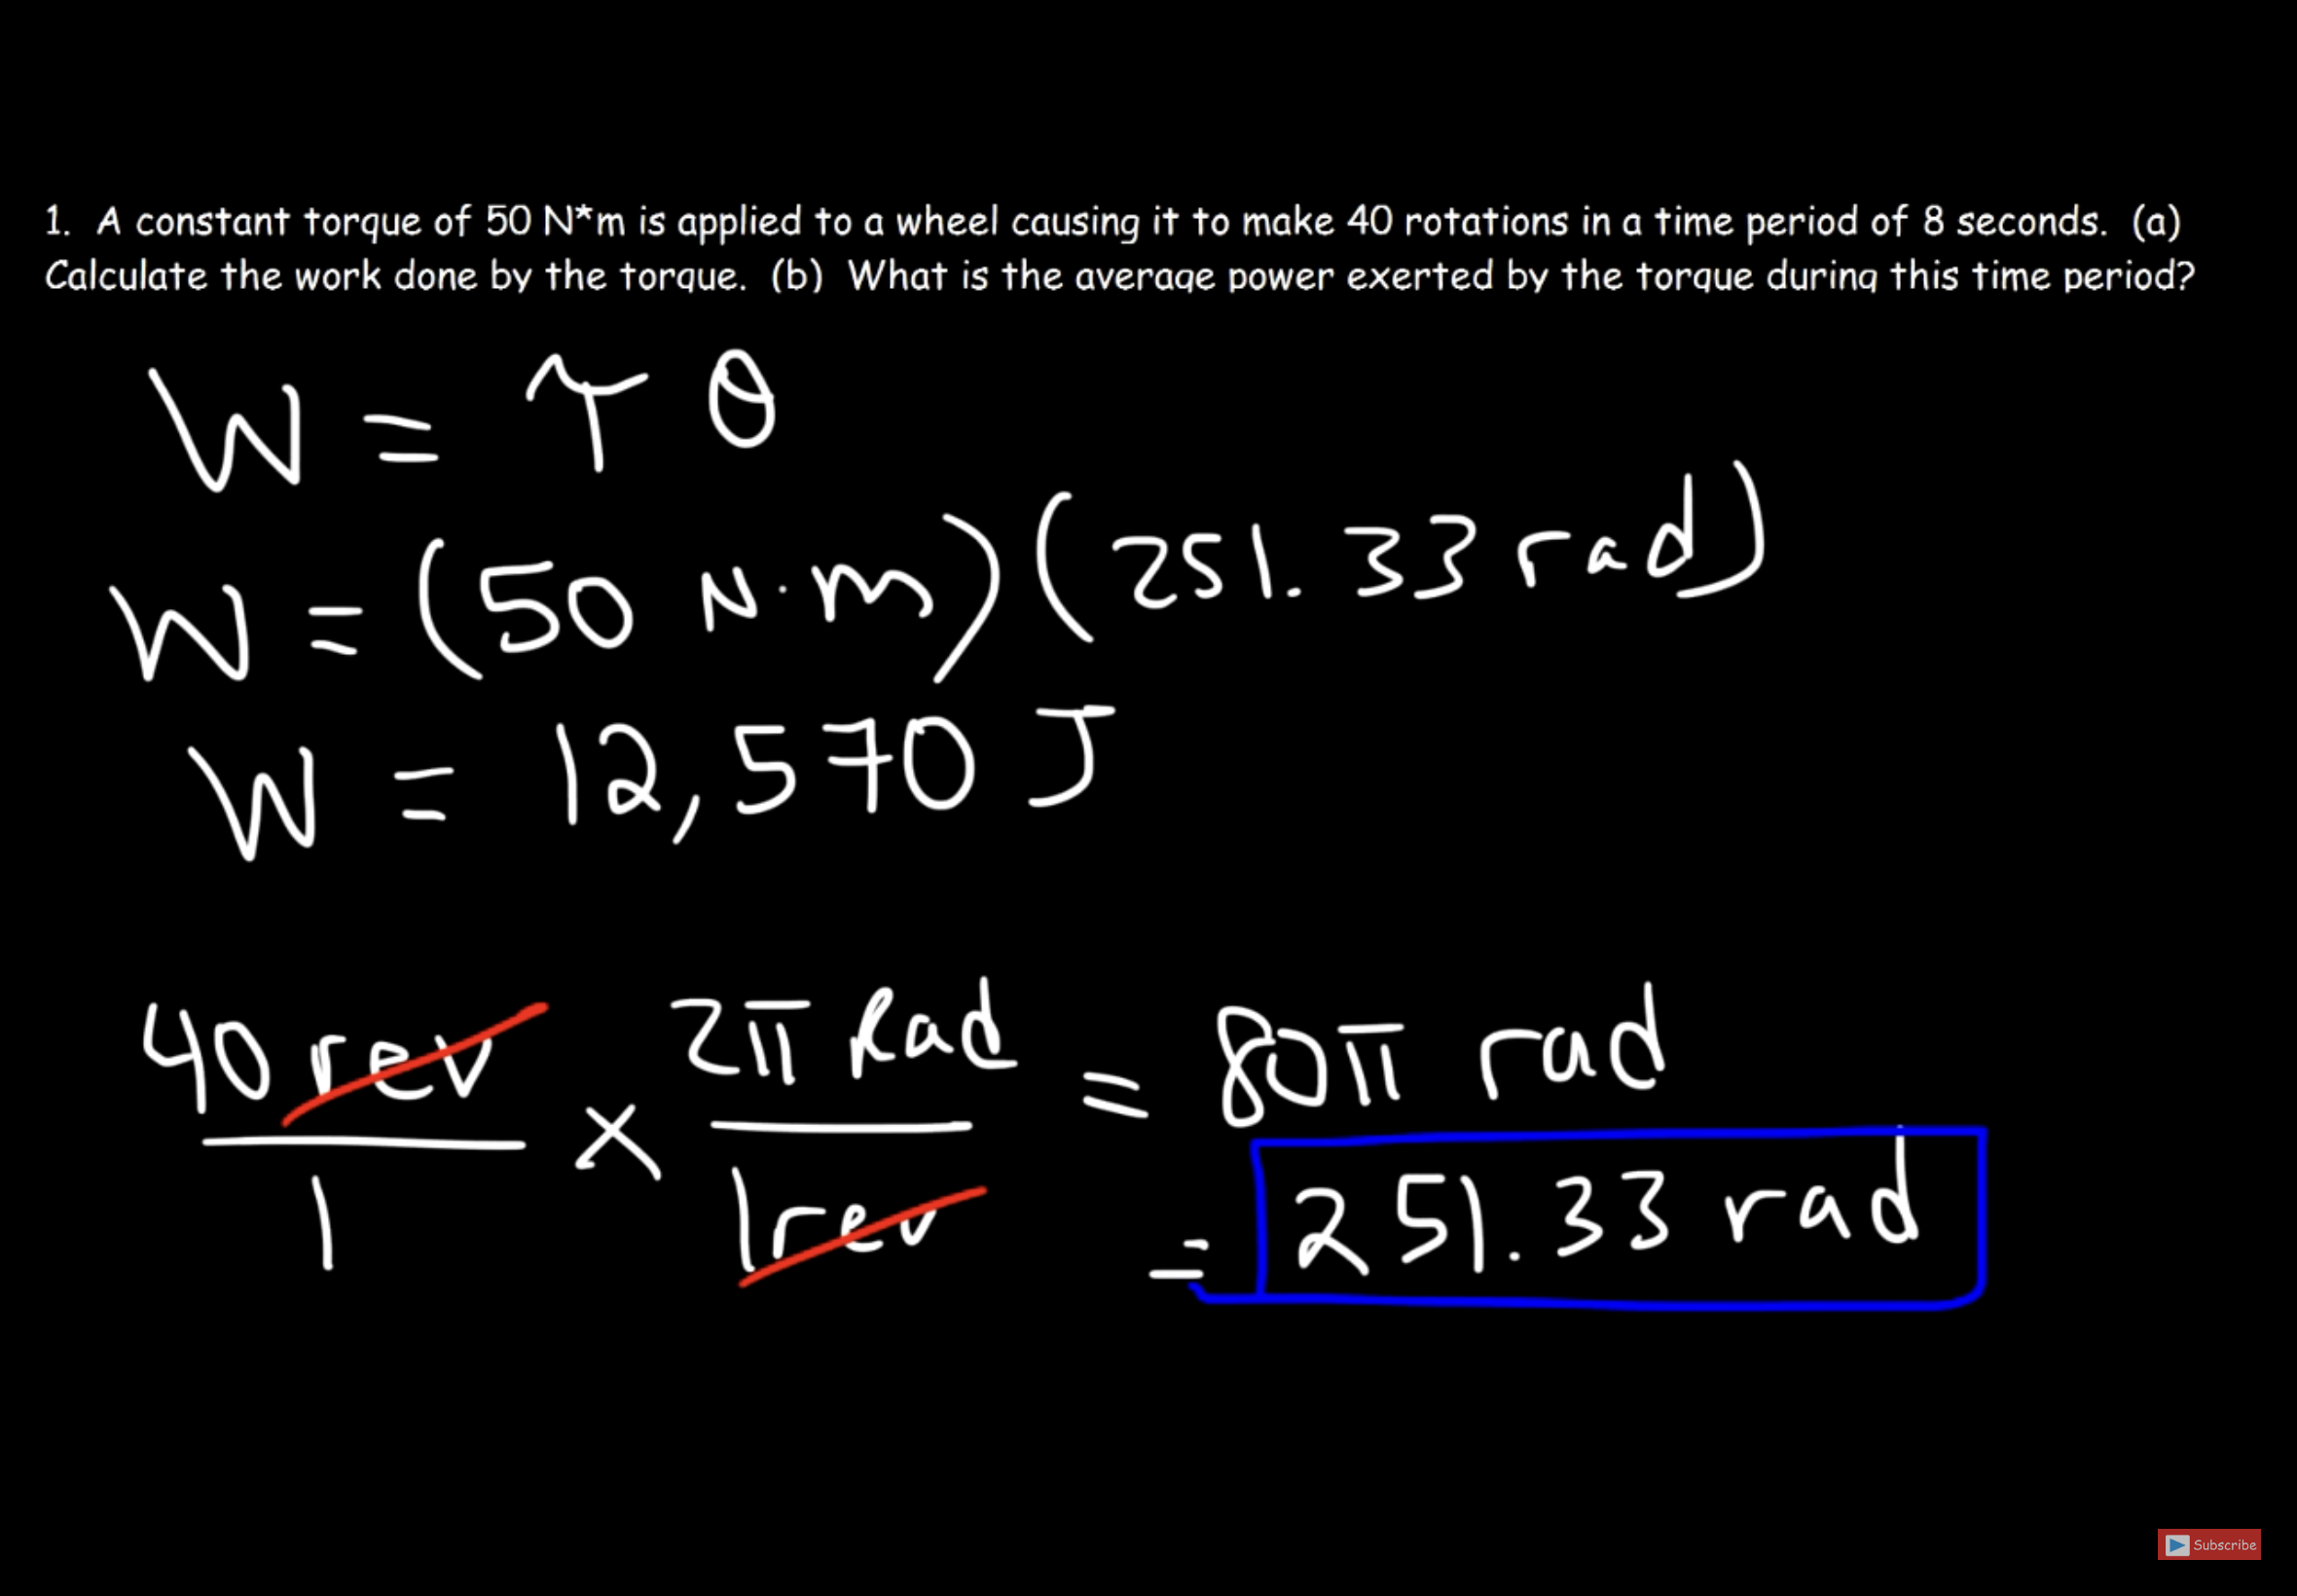 1. A constant torque of 50 N*m is applied to a wheel causing it to make 40 rotations in a time period of 8 seconds. (a)
Calculate the work done by the torque. (b) What is the average power exerted by the torque during this time period?
W = τ θ
W = (50 N·m)(251.33 rad)
W = 12,570 J
40 rev / 1 × 2π Rad / 1 rev = 80π rad
= 251.33 rad
Subscribe